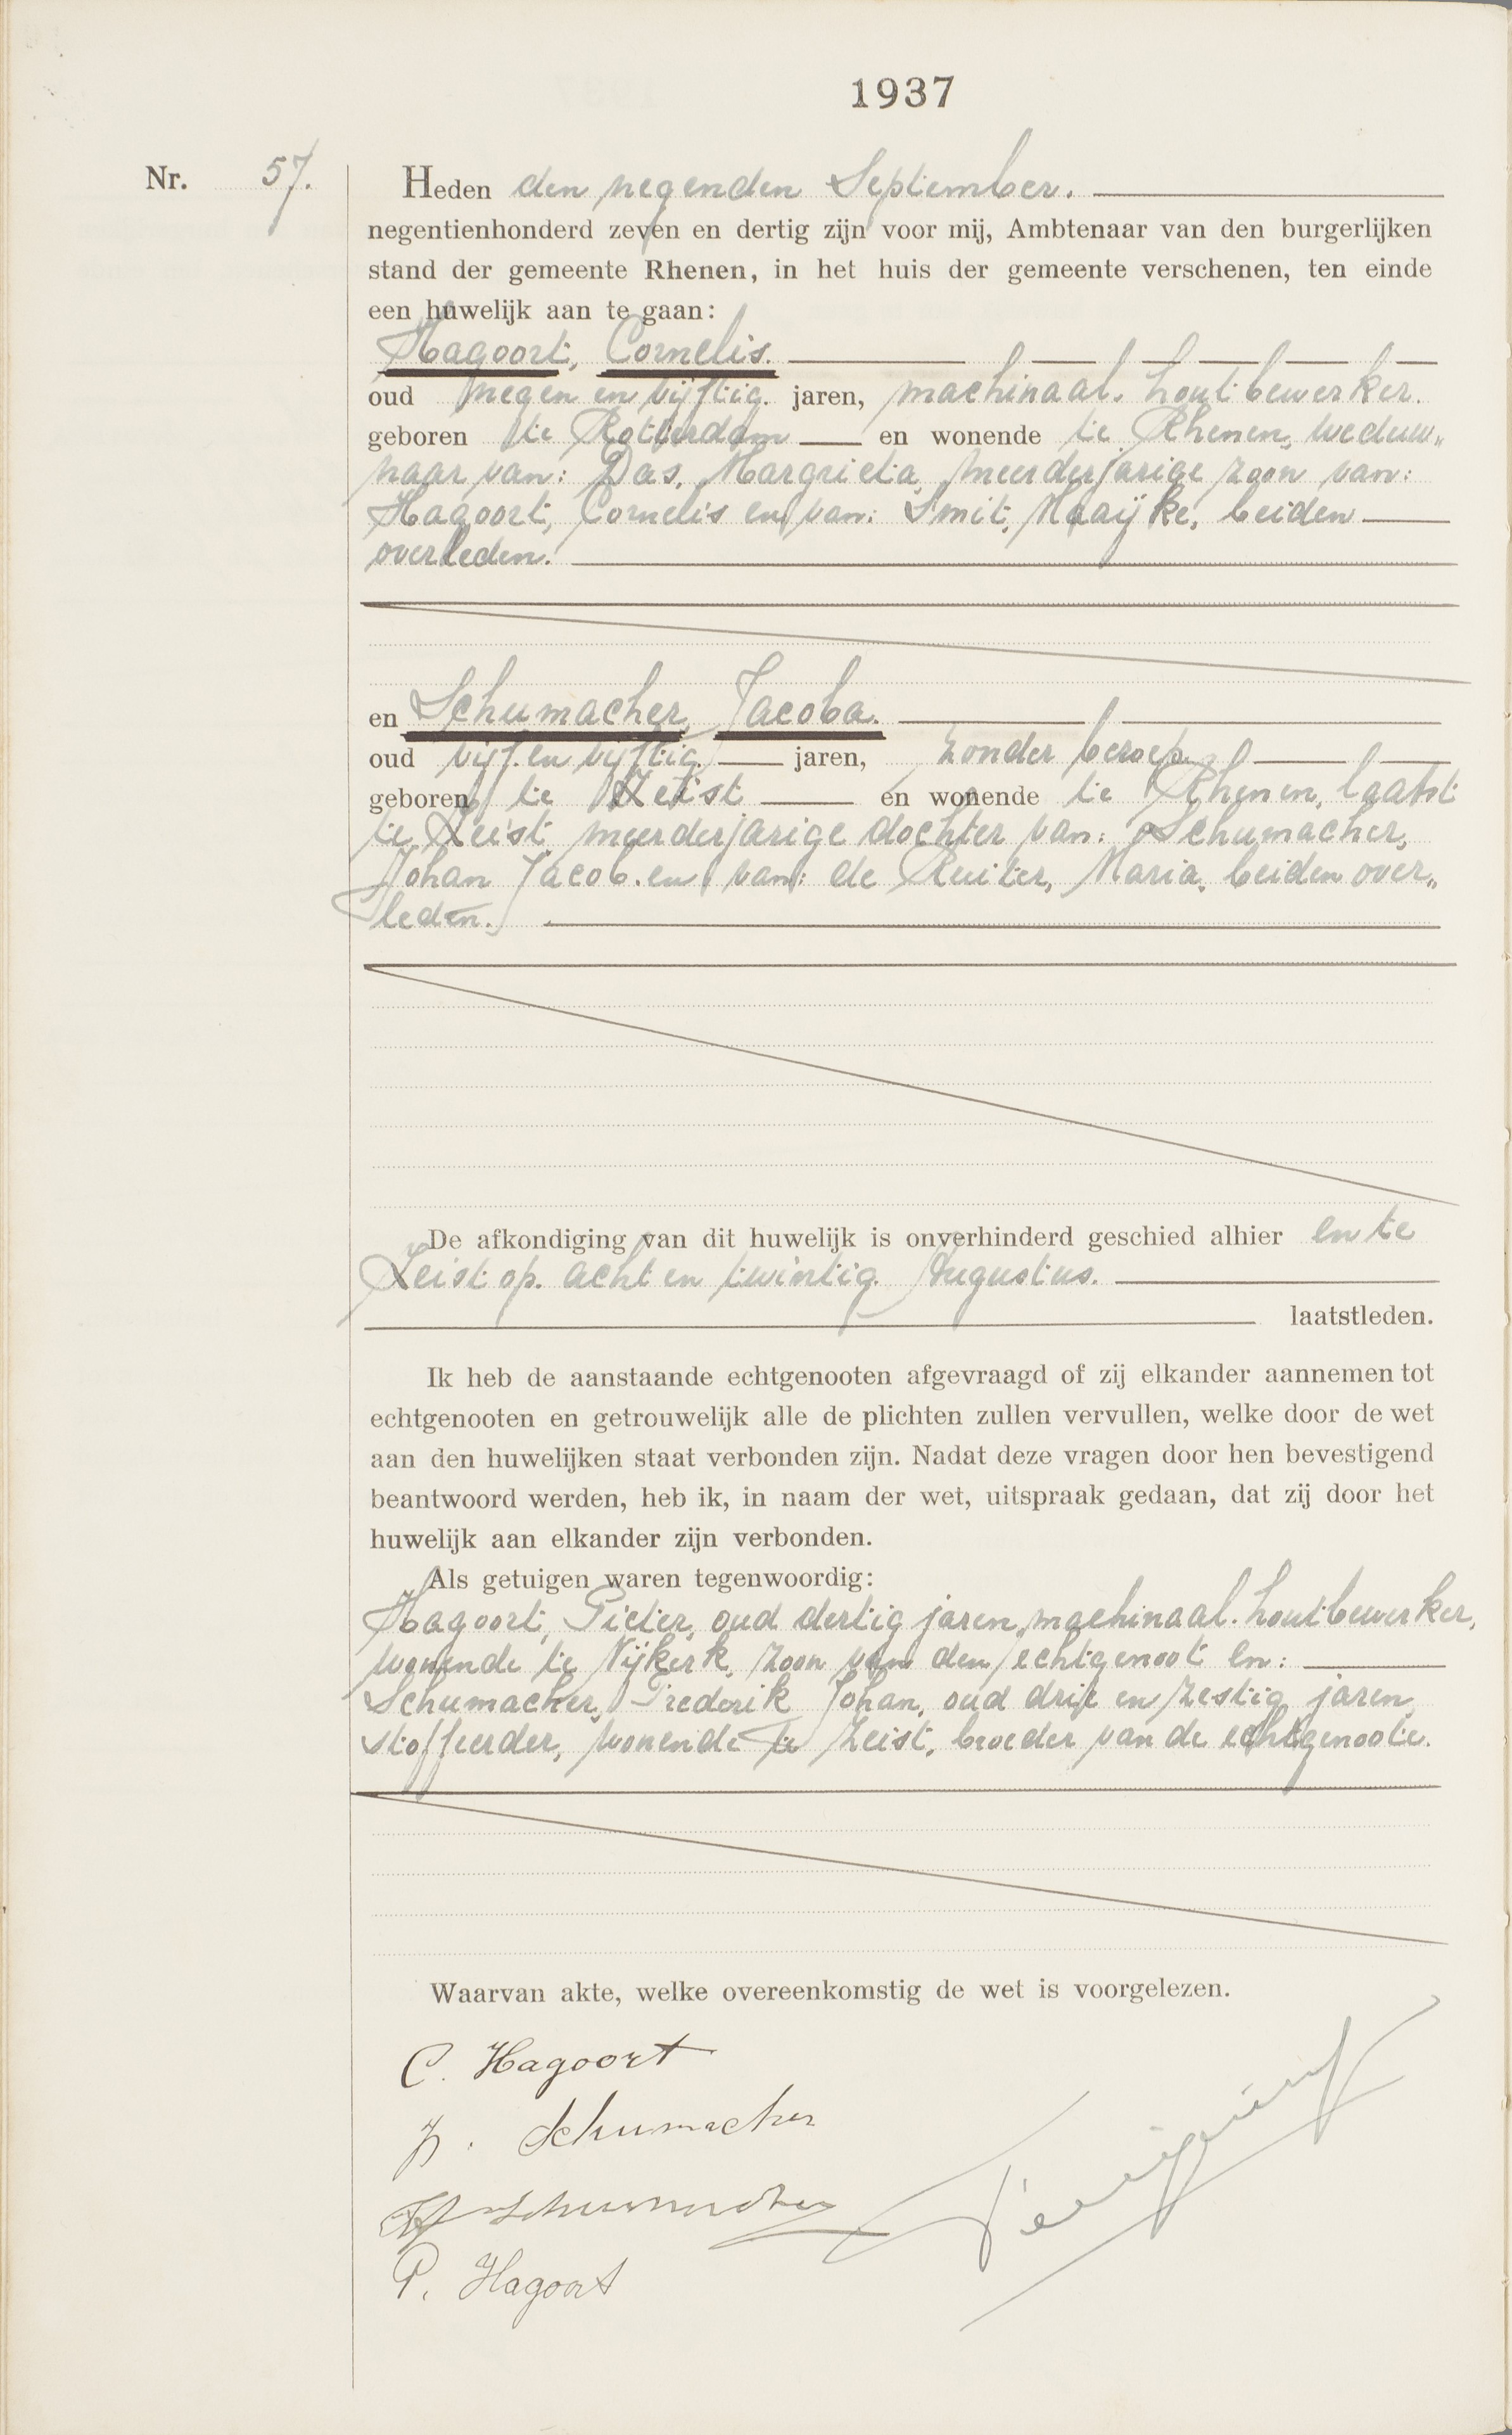 1937
Nr. 57.
Heden den negenden September.
negentienhonderd zeven en dertig zijn voor mij, Ambtenaar van den burgerlijken
stand der gemeente Rhenen, in het huis der gemeente verschenen, ten einde
een huwelijk aan te gaan:
Hagoort, Cornelis.
oud negen en vijftig. jaren, machinaal. houtbewerker.
geboren te Rotterdam en wonende te Rhenen, weduw„
naar van: Das, Margrieta, meerderjarige zoon van:
Hagoort, Cornelis en van: Smit, Maaijke, beiden
overleden.
en Schumacher, Jacoba.
oud vijf en vijftig. jaren, zonder beroep.
geboren te Zeist en wonende te Rhenen, laatst
te Zeist, meerderjarige dochter van: Schumacher,
Johan Jacob. en van: de Ruiter, Maria, beiden over„
leden.
De afkondiging van dit huwelijk is onverhinderd geschied alhier en te
Zeist op. acht en twintig. Augustus.
laatstleden.
Ik heb de aanstaande echtgenooten afgevraagd of zij elkander aannemen tot
echtgenooten en getrouwelijk alle de plichten zullen vervullen, welke door de wet
aan den huwelijken staat verbonden zijn. Nadat deze vragen door hen bevestigend
beantwoord werden, heb ik, in naam der wet, uitspraak gedaan, dat zij door het
huwelijk aan elkander zijn verbonden.
Als getuigen waren tegenwoordig:
Hagoort, Pieter, oud dertig jaren, machinaal. houtbewerker,
wonende te Nijkerk, zoon van den echtgenoot en:
Schumacher, Frederik Johan, oud drie en zestig jaren,
stoffeerder, wonende te Zeist, broeder van de echtgenoote.
Waarvan akte, welke overeenkomstig de wet is voorgelezen.
C. Hagoort
J. Schumacher
Schumacher
P. Hagoort